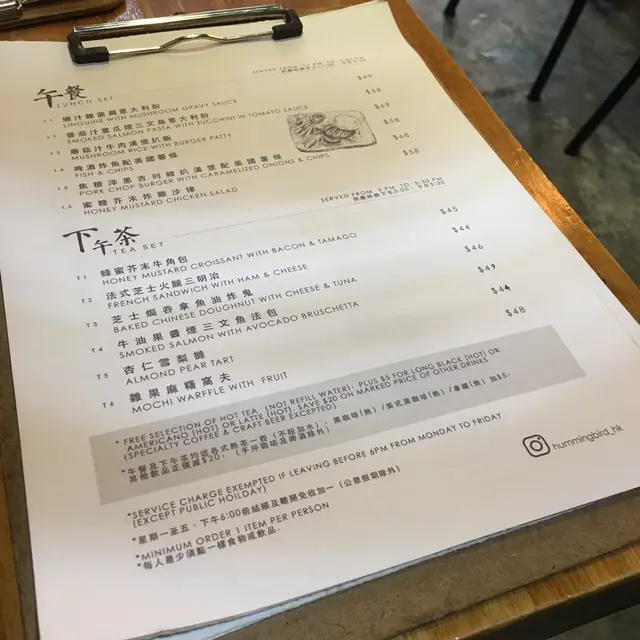 午餐
LUNCH SET
$49
L1 燒汁雜菌扁意大利粉
LINGUINE WITH MUSHROOM GRAVY SAUCE
$58
L2 番茄汁意瓜煙三文魚意大利粉
SMOKED SALMON PASTA WITH ZUCCHINI IN TOMATO SAUCE
$69
蘑菇汁牛肉漢堡扒飯
MUSHROOM RICE WITH BURGER PATTY
$58
L4 啤酒炸魚配美國薯條
FISH & CHIPS
$68
L5 焦糖洋蔥吉列豬扒漢堡配美國薯條
PORK CHOP BURGER WITH CARAMELIZED ONIONS & CHIPS
$58
L6 蜜糖芥末炸雞沙律
HONEY MUSTARD CHICKEN SALAD
下午茶
TEA SET
SERVED FROM 3 PM TO 5:30 PM
供應時間下午3:00 - 下午5:30
T1 蜂蜜芥末牛角包 $45
HONEY MUSTARD CROISSANT WITH BACON & TAMAGO
T2 法式芝士火腿三明治 $44
FRENCH SANDWICH WITH HAM & CHEESE
T3 芝士焗吞拿魚油炸鬼 $46
BAKED CHINESE DOUGHNUT WITH CHEESE & TUNA
T4 牛油果醬煙三文魚法包 $49
SMOKED SALMON WITH AVOCADO BRUSCHETTA
T5 杏仁雪梨撻 $44
ALMOND PEAR TART
T6 雜果麻糬窩夫 $48
MOCHI WARFFLE WITH FRUIT
* FREE SELECTION OF HOT TEA (NOT REFILL WATER); PLUS $5 FOR LONG BLACK (HOT) OR
AMERICANO (HOT) OR LATTE (HOT). SAVE $20 ON MARKED PRICE OF OTHER DRINKS
(SPECIALTY COFFEE & CRAFT BEER EXCEPTED)
*午餐及下午茶均送各式熱茶一壺（不設加水）；黑咖啡(熱)／美式黑咖啡(熱)／拿鐵(熱)加$5。
其他飲品正價減$20。（手沖咖啡及啤酒除外）
hummingbird_hk
*SERVICE CHARGE EXEMPTED IF LEAVING BEFORE 6PM FROM MONDAY TO FRIDAY
(EXCEPT PUBLIC HOILDAY)
*星期一至五，下午6:00前結賬及離開免收加一（公眾假期除外）
*MINIMUM ORDER 1 ITEM PER PERSON
*每人最少須點一樣食物或飲品。